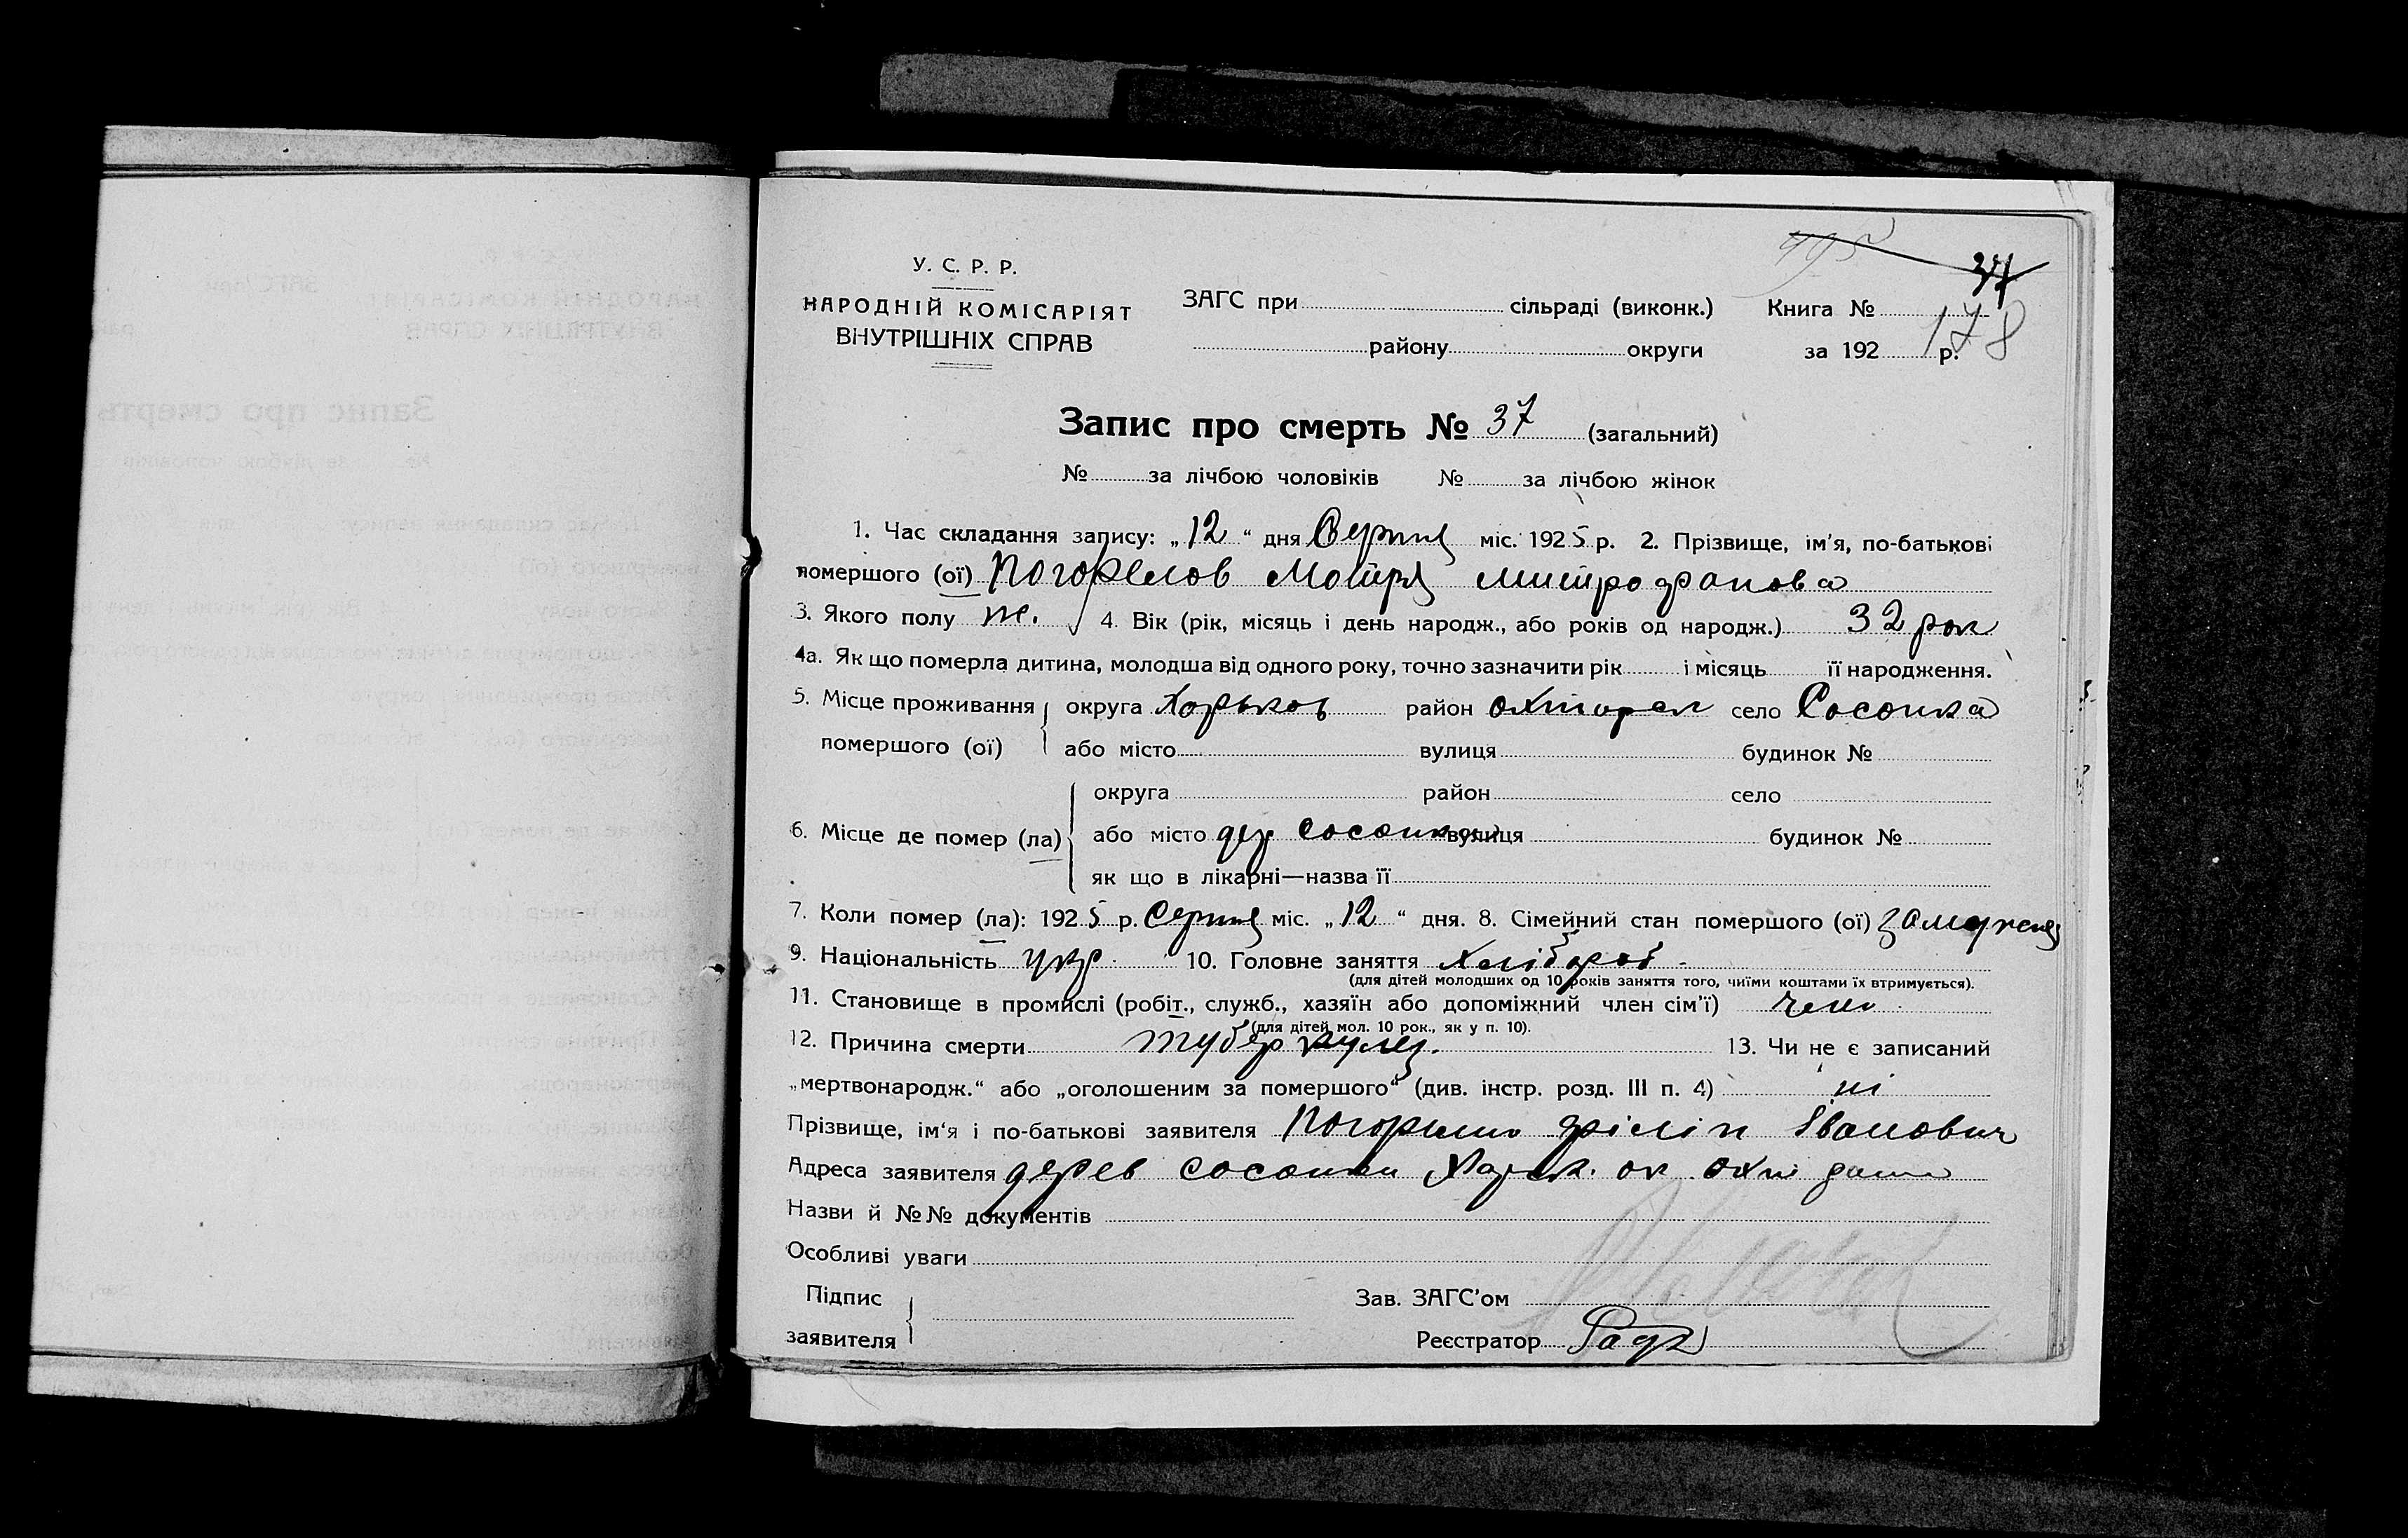 495
37
У. С. Р. Р.
НАРОДНІЙ КОМІСАРІЯТ
ВНУТРІШНІХ СПРАВ
ЗАГС при сільраді (виконк.)
району округи
Книга №
178
за 192 р.
Запис про смерть № 37 (загальний)
№ за лічбою чоловіків № за лічбою жінок
1. Час складання запису: „12“ дня Серпня міс. 1925 р. 2. Прізвище, ім'я, по-батькові
помершого (ої) Погорелов Мотря Митрофанова
3. Якого полу ж. 4. Вік (рік, місяць і день народж., або років од народж.) 32 рок
4а. Як що померла дитина, молодша від одного року, точно зазначити рік і місяць її народження.
5. Місце проживання округа Харьков район село Сосонка
помершого (ої) або місто вулиця будинок №
округа район село
6. Місце де помер (ла) або місто дер Сосонка вулиця будинок №
як що в лікарні—назва її
7. Коли помер (ла): 1925 р. Серпня міс. „12“ дня. 8. Сімейний стан помершого (ої) замужня
9. Національність укр. 10. Головне заняття хлібороб
(для дітей молодших од 10 років заняття того, чиїми коштами їх втримується).
11. Становище в промислі (робіт., служб., хазяїн або допоміжний член сім'ї) член
(для дітей мол. 10 рок., як у п. 10).
12. Причина смерти туберкулез. 13. Чи не є записаний
„мертвонародж.“ або „оголошеним за помершого“ (див. інстр. розд. III п. 4) ні
Прізвище, ім'я і по-батькові заявителя Філіп Іванович
Адреса заявителя дерев Сосонки Харьк. ок.
Назви й №№ документів
Особливі уваги
Підпис
заявителя
Зав. ЗАГС'ом
Реєстратор